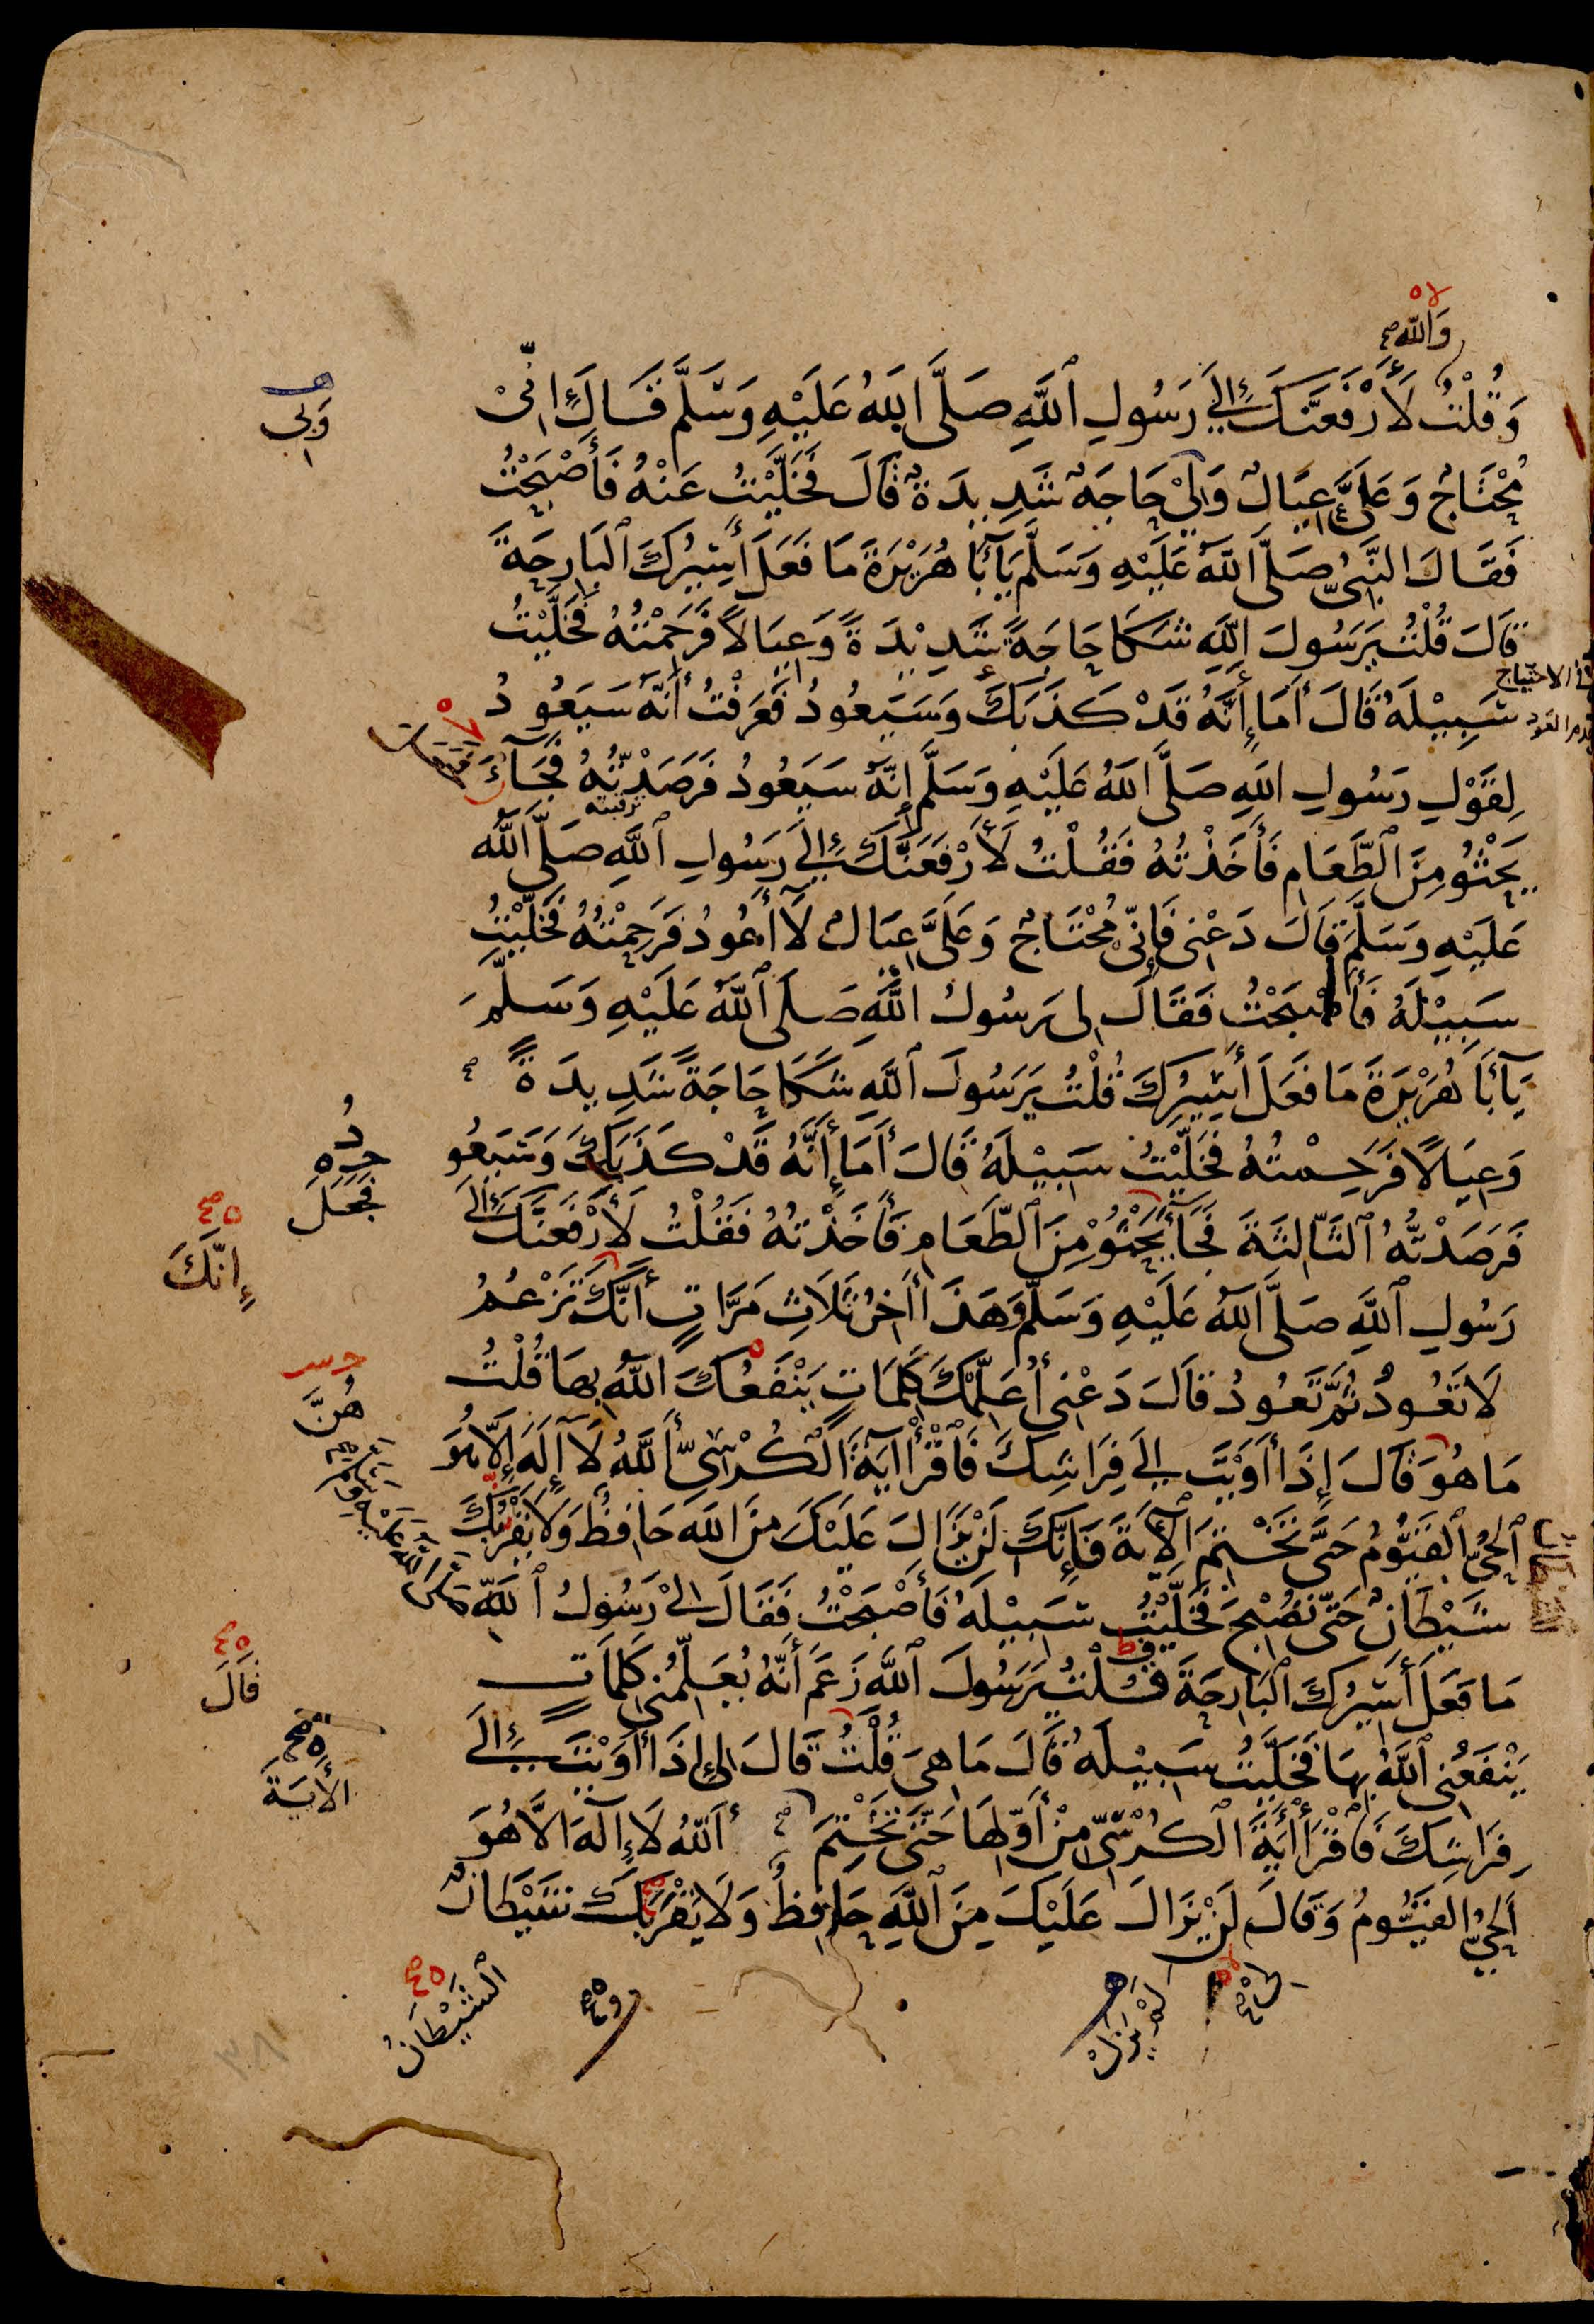 وَاللّٰهِ
وَقُلْتُ لَأَرْفَعَنَّكَ إِلَى رَسُولِ ٱللَّهِ صَلَّى اللهُ عَلَيْهِ وَسَلَّمَ قَالَ إِنِّي
وَبِي
مُحْتَاجٌ وَعَلَيَّ عِيَالٌ وَلِيْ حَاجَةٌ شَدِيدَةٌ قَالَ فَخَلَّيْتُ عَنْهُ فَأَصْبَحْتُ
فَقَالَ النَّبِيُّ صَلَّى اللهُ عَلَيْهِ وَسَلَّمَ يَآ أَبَا هُرَيْرَةَ مَا فَعَلَ أَسِيرُكَ ٱلْبَارِحَةَ
قَالَ قُلْتُ يَرَسُولَ اللهِ شَكَا حَاجَةً شَدِيْدَةً وَعِيَالًا فَرَحِمْتُهُ فَخَلَّيْتُ
في الاحتياج
سَبِيْلَهُ قَالَ أَمَا إِنَّهُ قَدْ كَذَبَكَ وَسَيَعُودُ فَعَرَفْتُ أَنَّهُ سَيَعُودُ
لِقَوْلِ رَسُولِ اللهِ صَلَّى اللهُ عَلَيْهِ وَسَلَّمَ إِنَّهُ سَيَعُودُ فَرَصَدْتُهُ فَجَآءَ
يَحْثُو مِنَ ٱلطَّعَامِ فَأَخَذْتُهُ فَقُلْتُ لَأَرْفَعَنَّكَ إِلَى رَسُولِ ٱللَّهِ صَلَّى اللهُ
عَلَيْهِ وَسَلَّمَ قَالَ دَعْنِي فَإِنِّي مُحْتَاجٌ وَعَلَيَّ عِيَالٌ لَآ أَعُودُ فَرَحِمْتُهُ فَخَلَّيْتُ
سَبِيْلَهُ فَأَصْبَحْتُ فَقَالَ لِي رَسُولُ اللَّهِ صَلَّى ٱللهُ عَلَيْهِ وَسَلَّمَ
يَآ أَبَا هُرَيْرَةَ مَا فَعَلَ أَسِيرُكَ قُلْتُ يَرَسُولَ ٱللَّهِ شَكَا حَاجَةً شَدِيدَةً
وَعِيَالًا فَرَحِمْتُهُ فَخَلَّيْتُ سَبِيْلَهُ قَالَ أَمَا إِنَّهُ قَدْ كَذَبَكَ وَسَيَعُو
دُ
فَجَعَلَ
فَرَصَدْتُهُ ٱلثَّالِثَةَ فَجَآءَ يَحْثُوْ مِنَ ٱلطَّعَامِ فَأَخَذْتُهُ فَقُلْتُ لَأَرْفَعَنَّكَ إِلَى
إِنَّكَ
رَسُولِ ٱللَّهِ صَلَّى اللهُ عَلَيْهِ وَسَلَّمَ وَهَذَا أَخِرُ ثَلَاثِ مَرَّاتٍ أَنَّكَ تَزْعُمُ
لَا تَعُودُ ثُمَّ تَعُودُ قَالَ دَعْنِي أُعَلِّمْكَ كَلِمَاتٍ يَنْفَعُكَ اللهُ بِهَا قُلْتُ
هُنَّ
مَا هُوَ قَالَ إِذَا أَوَيْتَ إِلَى فِرَاشِكَ فَٱقْرَأْ آيَةَ ٱلْكُرْسِيِّ أَللهُ لَآ إِلَهَ إِلَّا هُوَ
ٱلْحَيُّ ٱلْقَيُّومُ حَتَّى تَخْتِمَ ٱلْآيَةَ فَإِنَّكَ لَنْ يَزَالَ عَلَيْكَ مِنَ اللهِ حَافِظٌ وَلَا يَقْرَبُكَ
شَيْطَانٌ حَتَّى تُصْبِحَ فَخَلَّيْتُ سَبِيْلَهُ فَأَصْبَحْتُ فَقَالَ لِيْ رَسُولُ ٱللهِ صَلَّى اللهُ عَلَيْهِ وَسَلَّمَ
مَا فَعَلَ أَسِيرُكَ ٱلْبَارِحَةَ قُلْتُ يَرَسُولَ ٱللهِ زَعَمَ أَنَّهُ يُعَلِّمُنِي كَلِمَاتٍ
قَالَ
يَنْفَعُنِي ٱللهُ بِهَا فَخَلَّيْتُ سَبِيْلَهُ قَالَ مَا هِيَ قُلْتُ قَالَ لِي إِذَا أَوَيْتَ إِلَى
الْأَيَةَ
فِرَاشِكَ فَٱقْرَأْ أَيَةَ ٱلْكُرْسِيِّ مِنْ أَوَّلِهَا حَتَّى تَخْتِمَ أَللهُ لَا إِلَهَ الَّا هُوَ
اَلْحَيُّ الْقَيُّومُ وَقَالَ لَنْ يَزَالَ عَلَيْكَ مِنَ ٱللَّهِ حَافِظٌ وَلَا يَقْرَبُكَ شَيْطَانٌ
لَمْ يَزَلْ
الشَّيْطَانُ